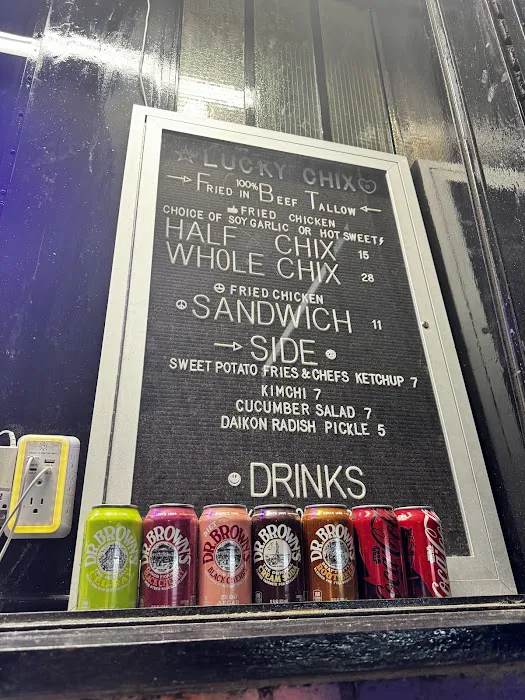 LUCKY CHIX
100%
FRIED IN BEEF TALLOW
FRIED CHICKEN
CHOICE OF SOY GARLIC OR HOT SWEET
HALF CHIX 15
WHOLE CHIX 28
FRIED CHICKEN
SANDWICH 11
SIDE
SWEET POTATO FRIES & CHEFS KETCHUP 7
KIMCHI 7
CUCUMBER SALAD 7
DAIKON RADISH PICKLE 5
DRINKS
DR. BROWN'S
DR. BROWN'S
DIET
DR. BROWN'S
BLACK CHERRY
DR. BROWN'S
CREAM SODA
DR. BROWN'S
Coca-Cola
Coca-Cola